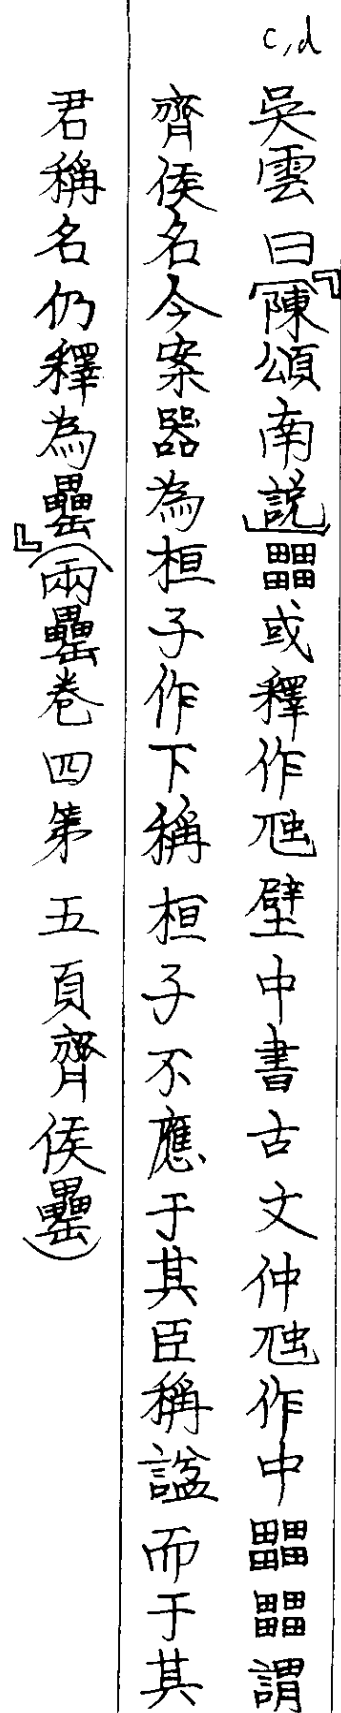 c,d
吳雲曰『(陳頌南說)𤳳或釋作虺壁中書古文仲虺作中𤳳𤳳謂
齊侯名今案器為桓子作下稱桓子不應于其臣稱諡而于其
君稱名仍釋為罍』(兩罍卷四第五頁齊侯罍)